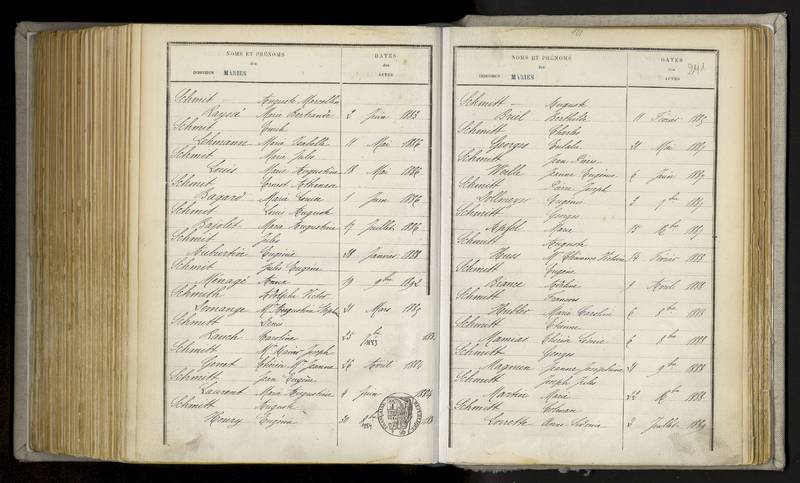 NOMS ET PRÉNOMS
des
INDIVIDUS MARIÉS
DATES
des
ACTES
Schmit - Auguste Marcellin
Marie Bertrande 2 Juin 1883
Schmit Emile
Lehmann Maria Isabelle 11 Mai 1886
Schmit Marie Jules
Louis Marie Augustine 18 Mai 1886
Schmit Ernest Athanase
Bagard Marie Louise 1 Juin 1886
Schmit Louis Auguste
Bajolet Marie Augustine 17 Juillet 1886
Schmit Jules
Aubertin Eugénie 28 Janvier 1888
Schmit Jules Eugène
Ménagé Anna 19 9bre 1892
Schmith Adolphe Victor
Lemange Mie Augustine 21 Mars 1885
Schmitt Denis
Rauch Caroline 25 1883
Schmitt Mie Joseph
Ganet Mie Jeanne 26 Avril 1884
Schmitt Jean Eugène
Laurent Marie Augustine 4 Juin 1884
Schmitt Auguste
Henry Eugénie 30 1884
NOMS ET PRÉNOMS
des
INDIVIDUS MARIÉS
DATES
des
ACTES
241
Schmitt - Auguste
Briel Berthilde 11 Février 1885
Schmitt Charles
Georges Eulalie 21 Mai 1887
Schmitt Jean Pierre
Wolle Jeanne Eugénie 6 Juin 1887
Schmitt Pierre Joseph
Eugénie 3 9bre 1887
Schmitt Georges
Apfel Marie 15 Xbre 1887
Schmitt Auguste
Huss 14 Février 1888
Schmitt Eugène
Biance 9 Avril 1888
Schmitt François
Hubler Marie Caroline 6 8bre 1888
Schmitt Etienne
6 8bre 1888
Schmitt Georges
Magnien Jeanne Joséphine 21 9bre 1888
Schmitt Joseph Jules
Martin Marie 22 Xbre 1888
Schmitt
Lorrette Anne 2 Juillet 1889